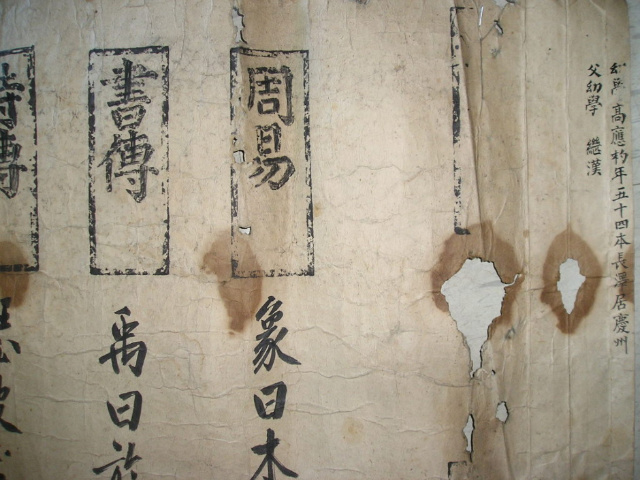 幼學 高應 年五十四本長澤居慶州
父幼學 繼漢
周易
象曰木
書傳
禹曰於
詩傳